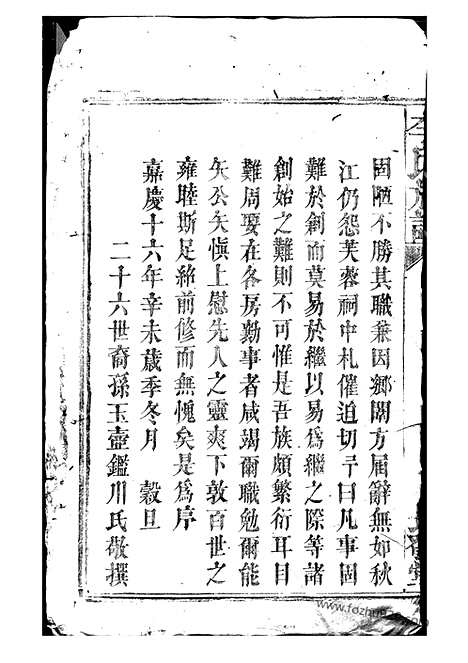 固陋不勝其職兼因鄉闈方屆辭無如秋
江仍怨芙蓉祠中札催迫切予曰凡事固
難於創而莫易於繼以易為繼之際等諸
創始之難則不可惟是吾族頗繁衍耳目
難周要在各房勤事者咸竭爾職勉爾能
矢公矢慎上慰先人之靈爽下敦百世之
雍睦斯足紹前修而無愧矣是為序
嘉慶十六年辛未歲季冬月 穀旦
二十六世裔孫玉壺鑑川氏敬撰